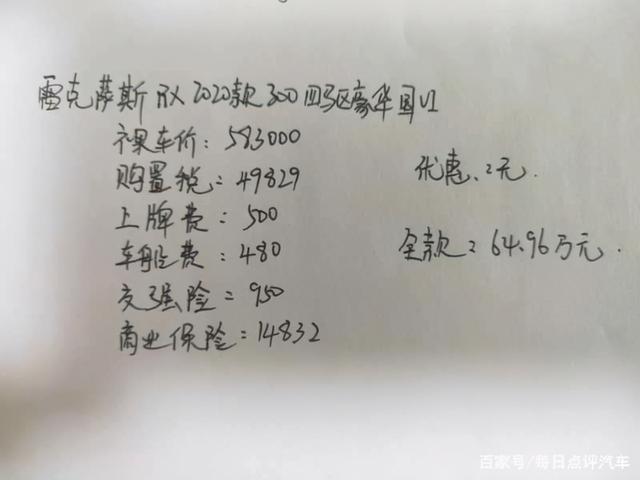 雷克萨斯 RX 2020款 300 四驱豪华国VI
裸车价：583000
购置税：49829
优惠：2元.
上牌费：500
全款：64.96万元.
车船费：480
交强险：950
商业保险：14832
百家号/每日点评汽车